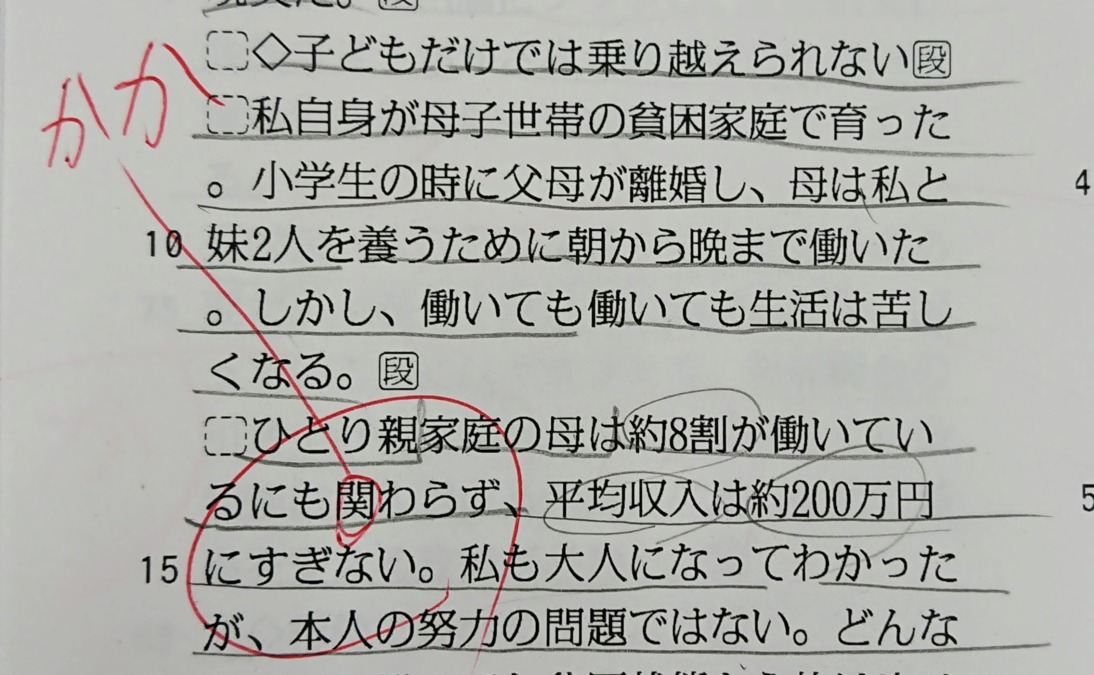 □◇子どもだけでは乗り越えられない段
□私自身が母子世帯の貧困家庭で育った
。小学生の時に父母が離婚し、母は私と
4
10 妹2人を養うために朝から晩まで働いた
。しかし、働いても働いても生活は苦し
くなる。段
□ひとり親家庭の母は約8割が働いてい
るにも関わらず、平均収入は約200万円
5
15 にすぎない。私も大人になってわかった
が、本人の努力の問題ではない。どんな
かか